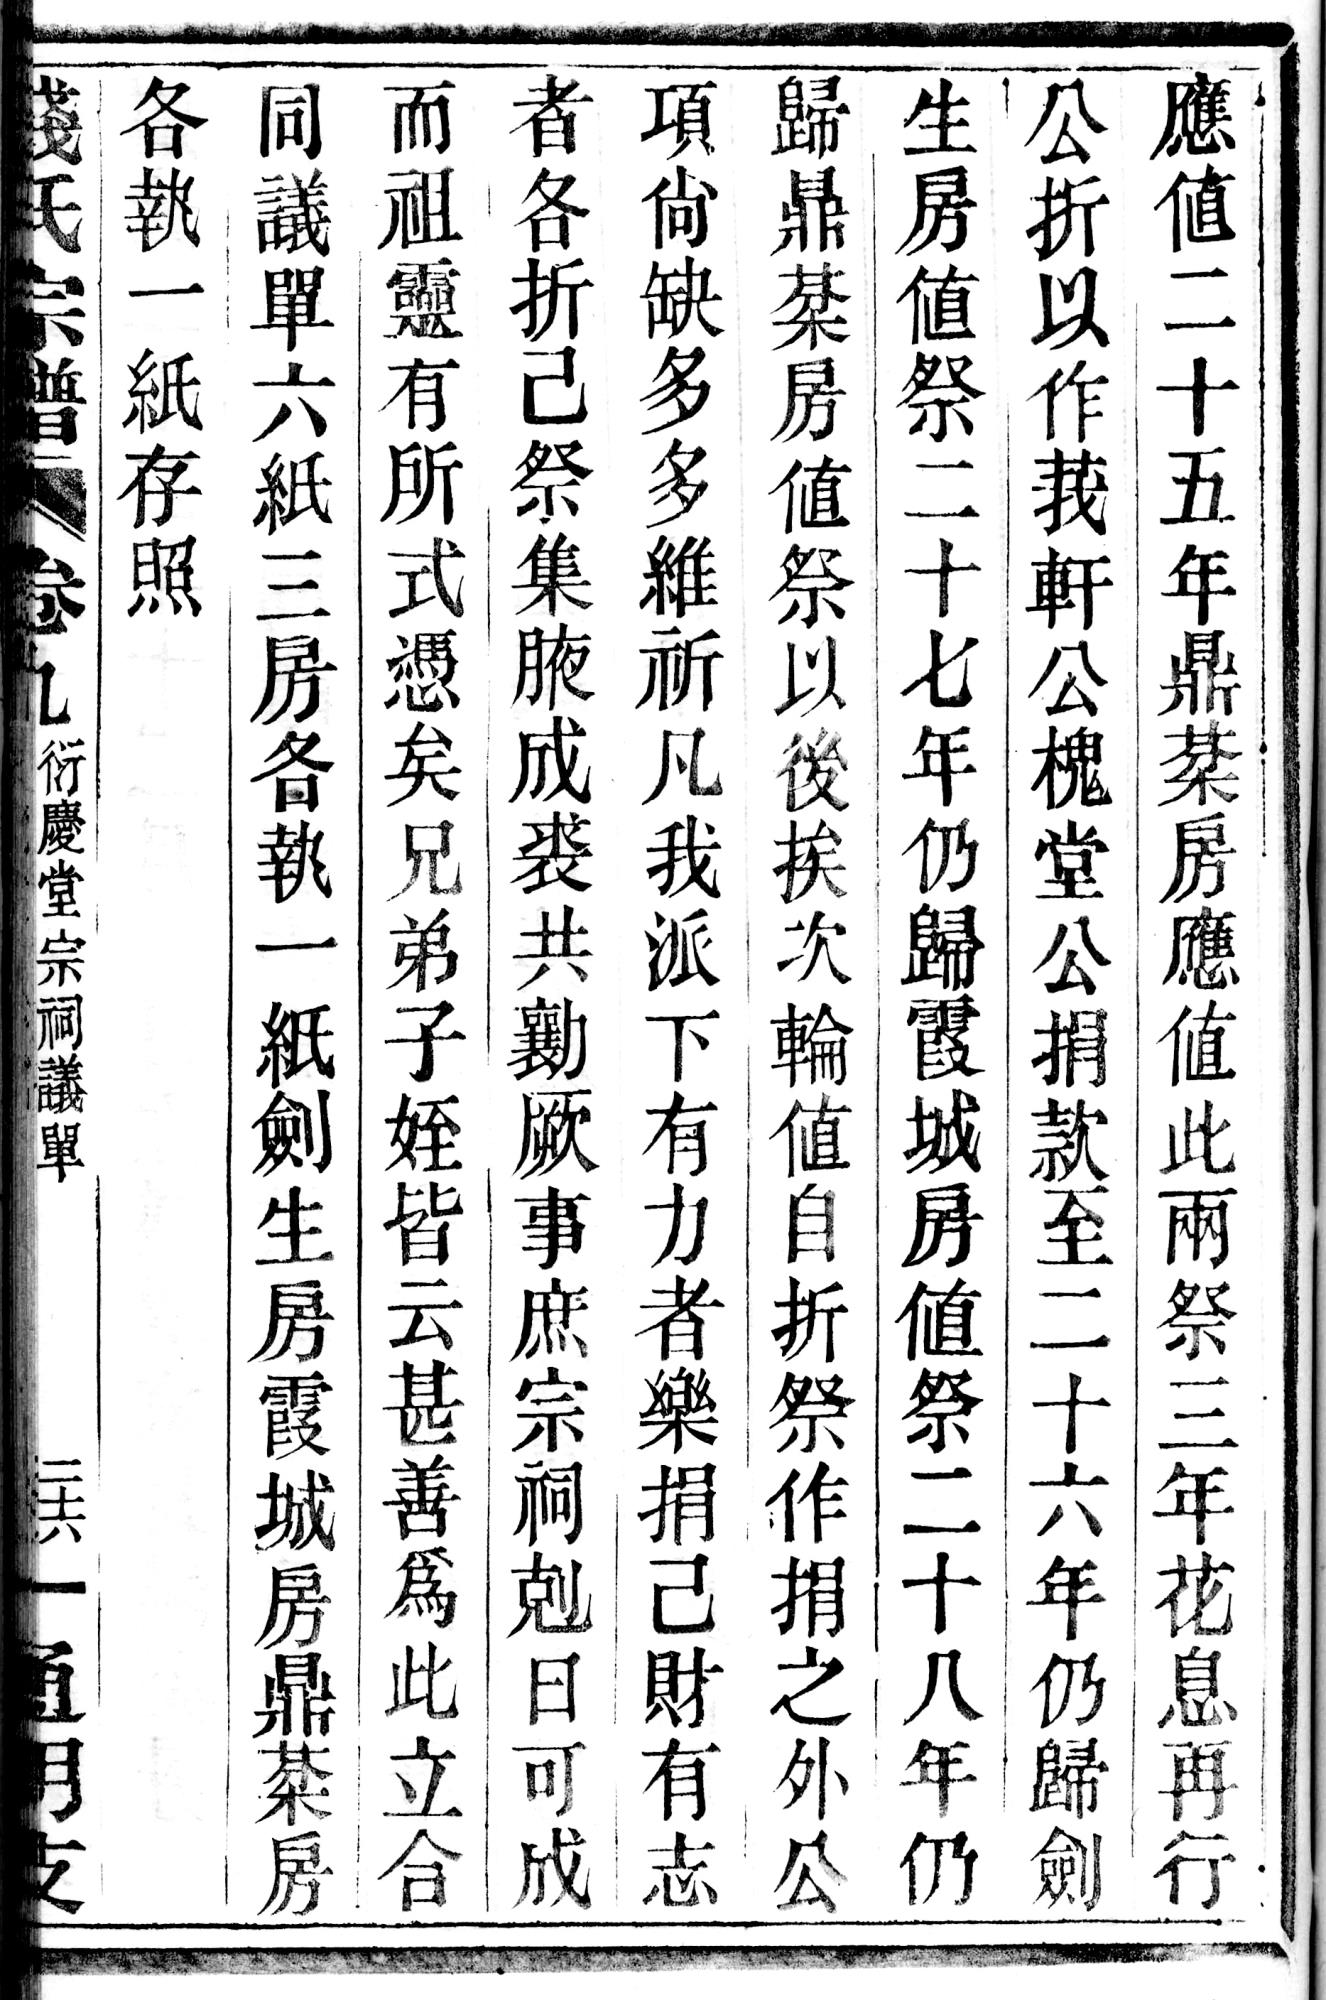 應値二十五年鼎棻房應値此兩祭三年花息再行
公折以作莪軒公槐堂公捐款至二十六年仍歸劍
生房値祭二十七年仍歸霞城房値祭二十八年仍
歸鼎棻房値祭以後挨次輪値自折祭作捐之外公
項尙缺多多維祈凡我派下有力者樂捐己財有志
者各折己祭集腋成裘共勷厥事庶宗祠剋日可成
而祖靈有所式憑矣兄弟子姪皆云甚善爲此立合
同議單六紙三房各執一紙劍生房霞城房鼎棻房
各執一紙存照
錢氏宗譜 卷九 衍慶堂宗祠議單 二六一 通明支